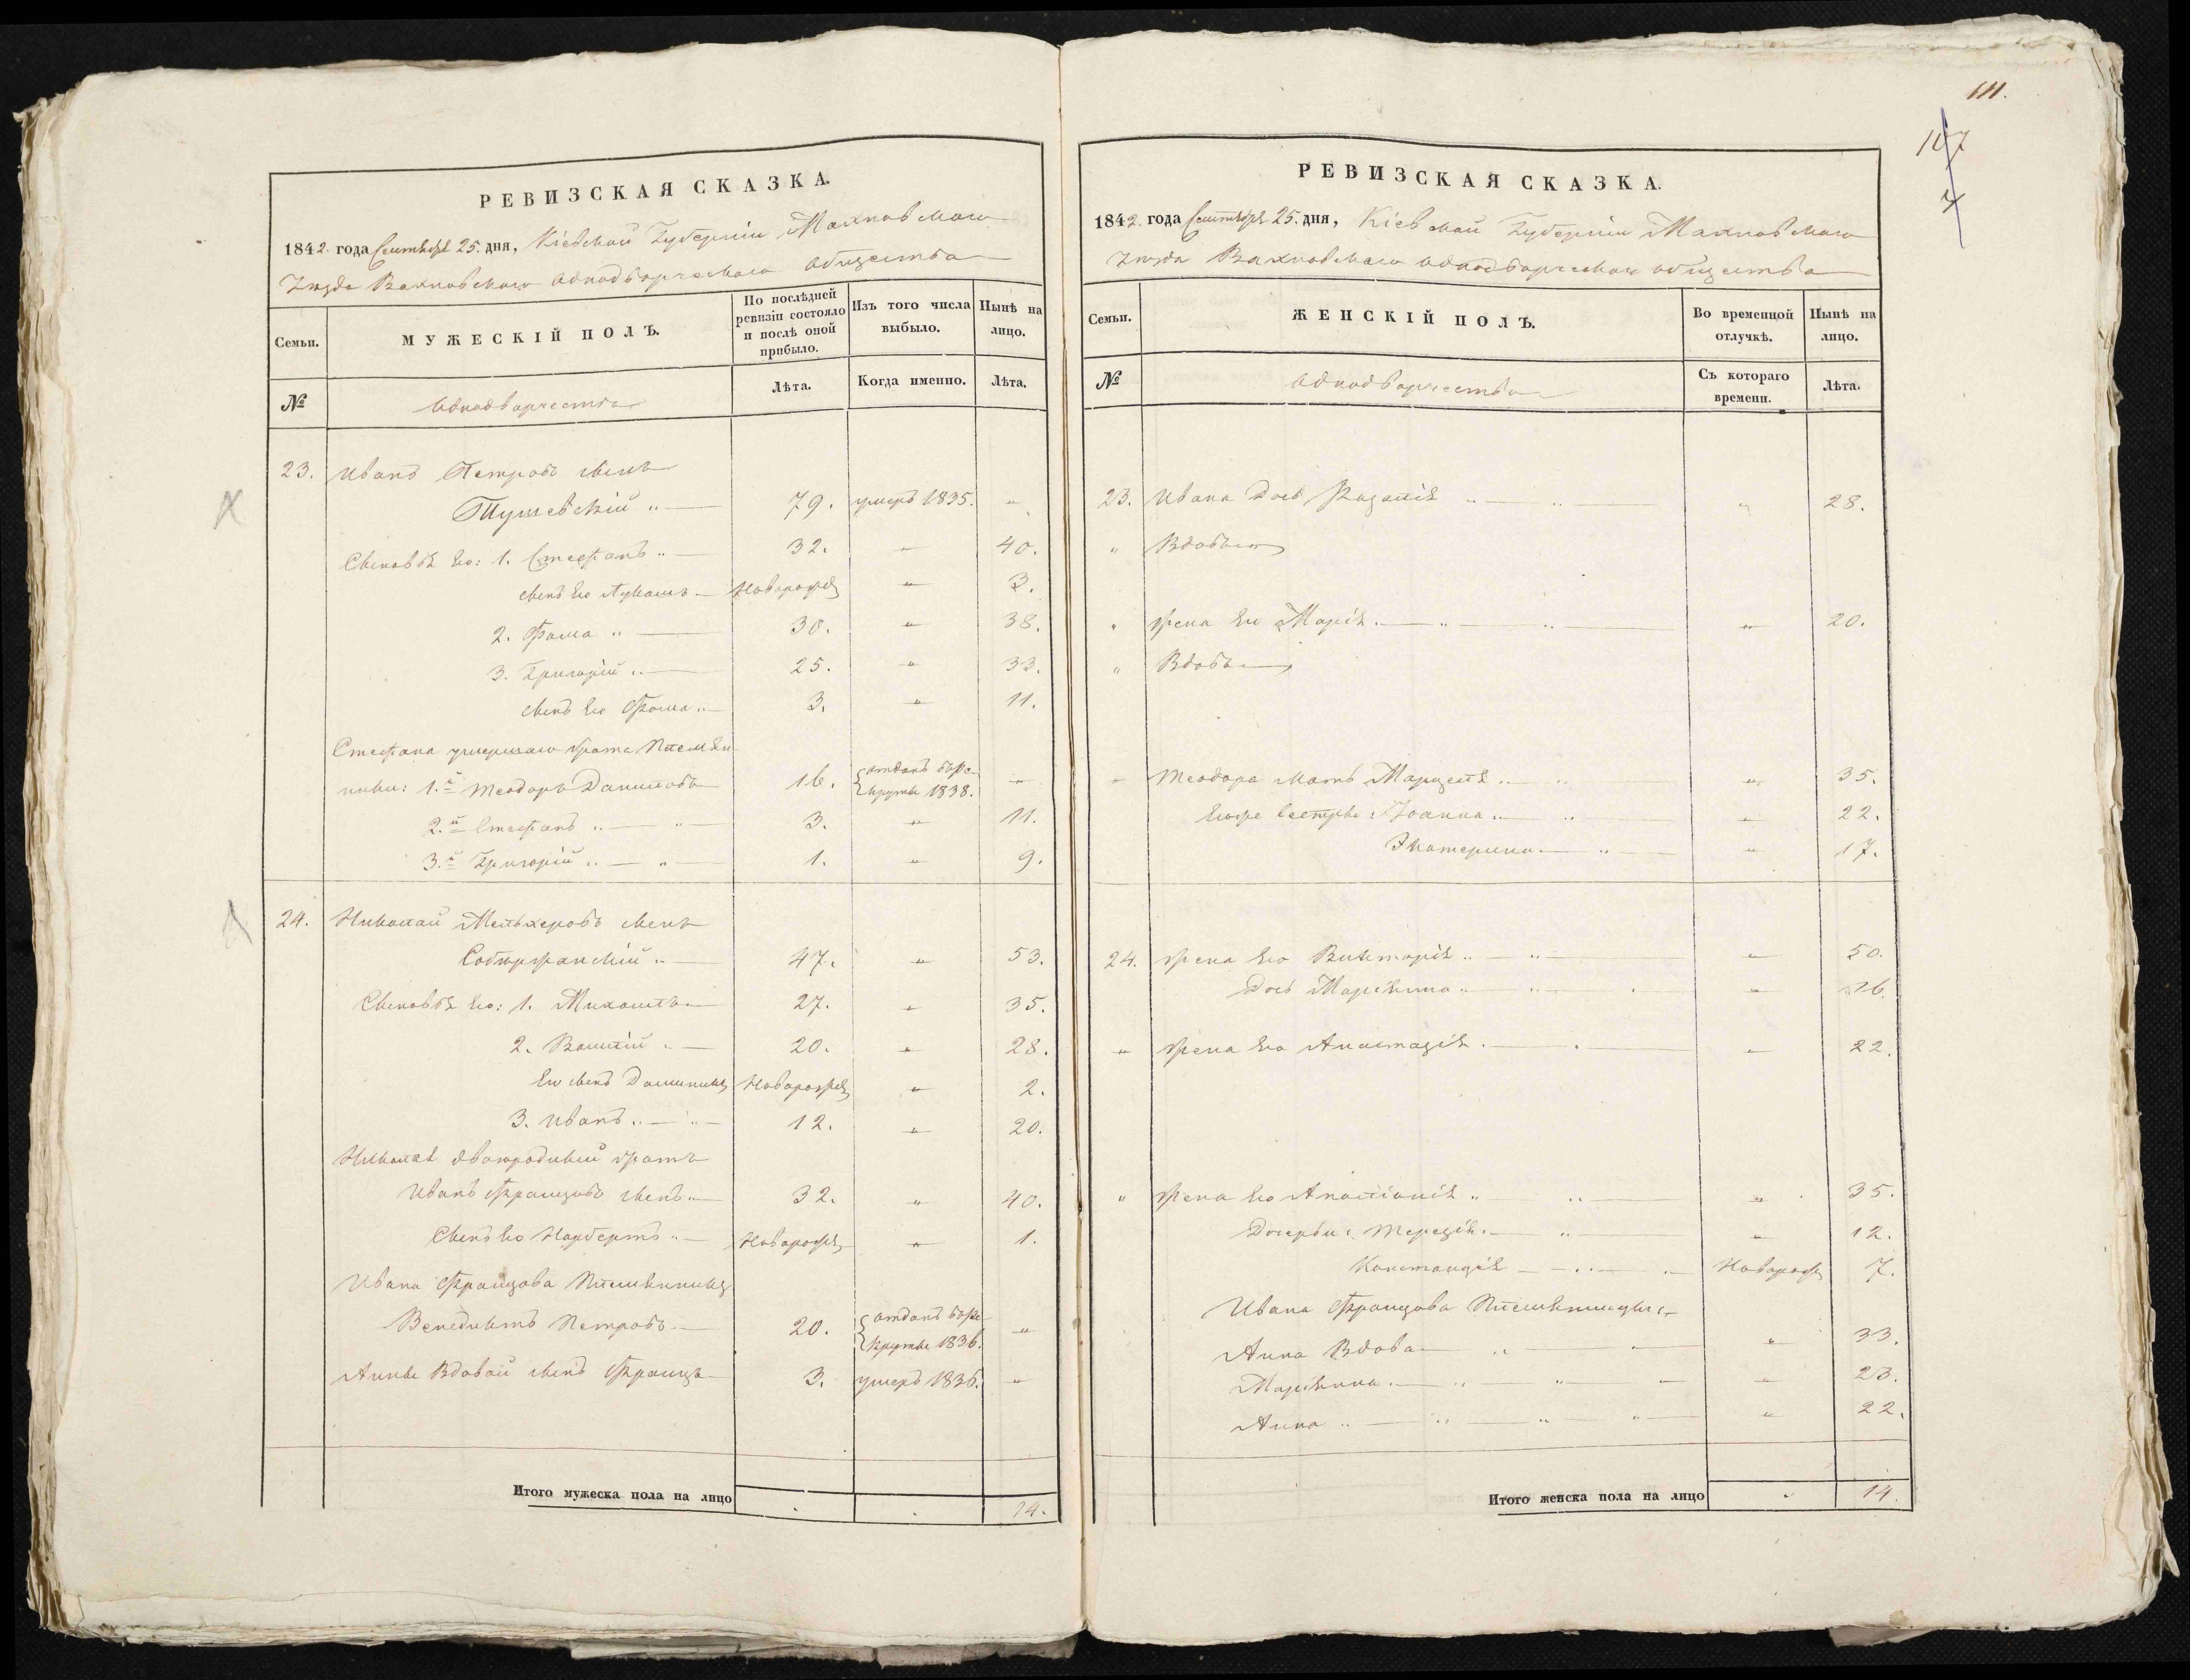 РЕВИЗСКАЯ СКАЗКА.
1842. года Сентября 25. дня, Кіевской Губерніи Махновскаго
Уезда Вахновскаго однодворческаго общества
Семьи.
МУЖЕСКІЙ ПОЛЪ.
По послѣдней ревизіи состояло и послѣ оной прибыло.
Изъ того числа выбыло.
Нынѣ на лицо.
№
однодворчества
Лѣта.
Когда именно.
Лѣта.
23. Иванъ Петровъ сынъ
79. умеръ 1835. "
Сыновья Его: 1. Стефанъ " 32. " 40.
сынъ Его Лукашъ Новорожд " 3.
2. Фома " 30. " 38.
3. Григорій " 25. " 33.
сынъ Его Фома " 3. " 11.
Стефана умершаго брата Племян-
ники: 1.й Теодоръ Даниловъ 16. отданъ в ре- "
круты 1838.
2.й Стефанъ " " 3. " 11.
3.й Григорій " " 1. " 9.
24. Николай Мельхеровъ сынъ
47. " 53.
Сыновья Его: 1. Михаилъ 27. " 35.
2. Василій " 20. " 28.
Его сынъ Доминикъ Новорожд " 2.
3. Иванъ " " 12. " 20.
Николая двоюродный братъ
Иванъ Францовъ сынъ " 32. " 40.
Сынъ Его Норбертъ " Новорожд " 1.
Ивана Францова Племянникъ
Венедиктъ Петровъ 20. отданъ в ре- "
круты 1836.
Анны Вдовой сынъ Францъ 3. умеръ 1836. "
Итого мужеска пола на лицо . . 14.
111.
107
РЕВИЗСКАЯ СКАЗКА.
1842. года Сентября 25. дня, Кіевской Губерніи Махновскаго
Уезда Вахновскаго однодворческаго общества
Семьи.
ЖЕНСКІЙ ПОЛЪ.
Во временной отлучкѣ.
Нынѣ на лицо.
№
однодворчества
Съ котораго времени.
Лѣта.
23. Ивана Дочь Розалія " " " 28.
" Вдовъ
" жена Его Марія " " " 20.
" Вдовъ
" Теодора мать Марцеля " " " 35.
Егоже сестры: Іоанна " " " 22.
Екатерина " " 17.
24. жена Его Викторія " " " 50.
Дочь Маріянна " " " 16.
" жена Его Анастазія " " 22.
" жена Его Аполіонія " " " 35.
Дочерьи: Терезія " " 12.
Констанція Новорожд 7.
Ивана Францова Племянницы:
Анна Вдова " " " 33.
Маріянна " " " 23.
Анна " " " " " 22.
Итого женска пола на лицо " 14.